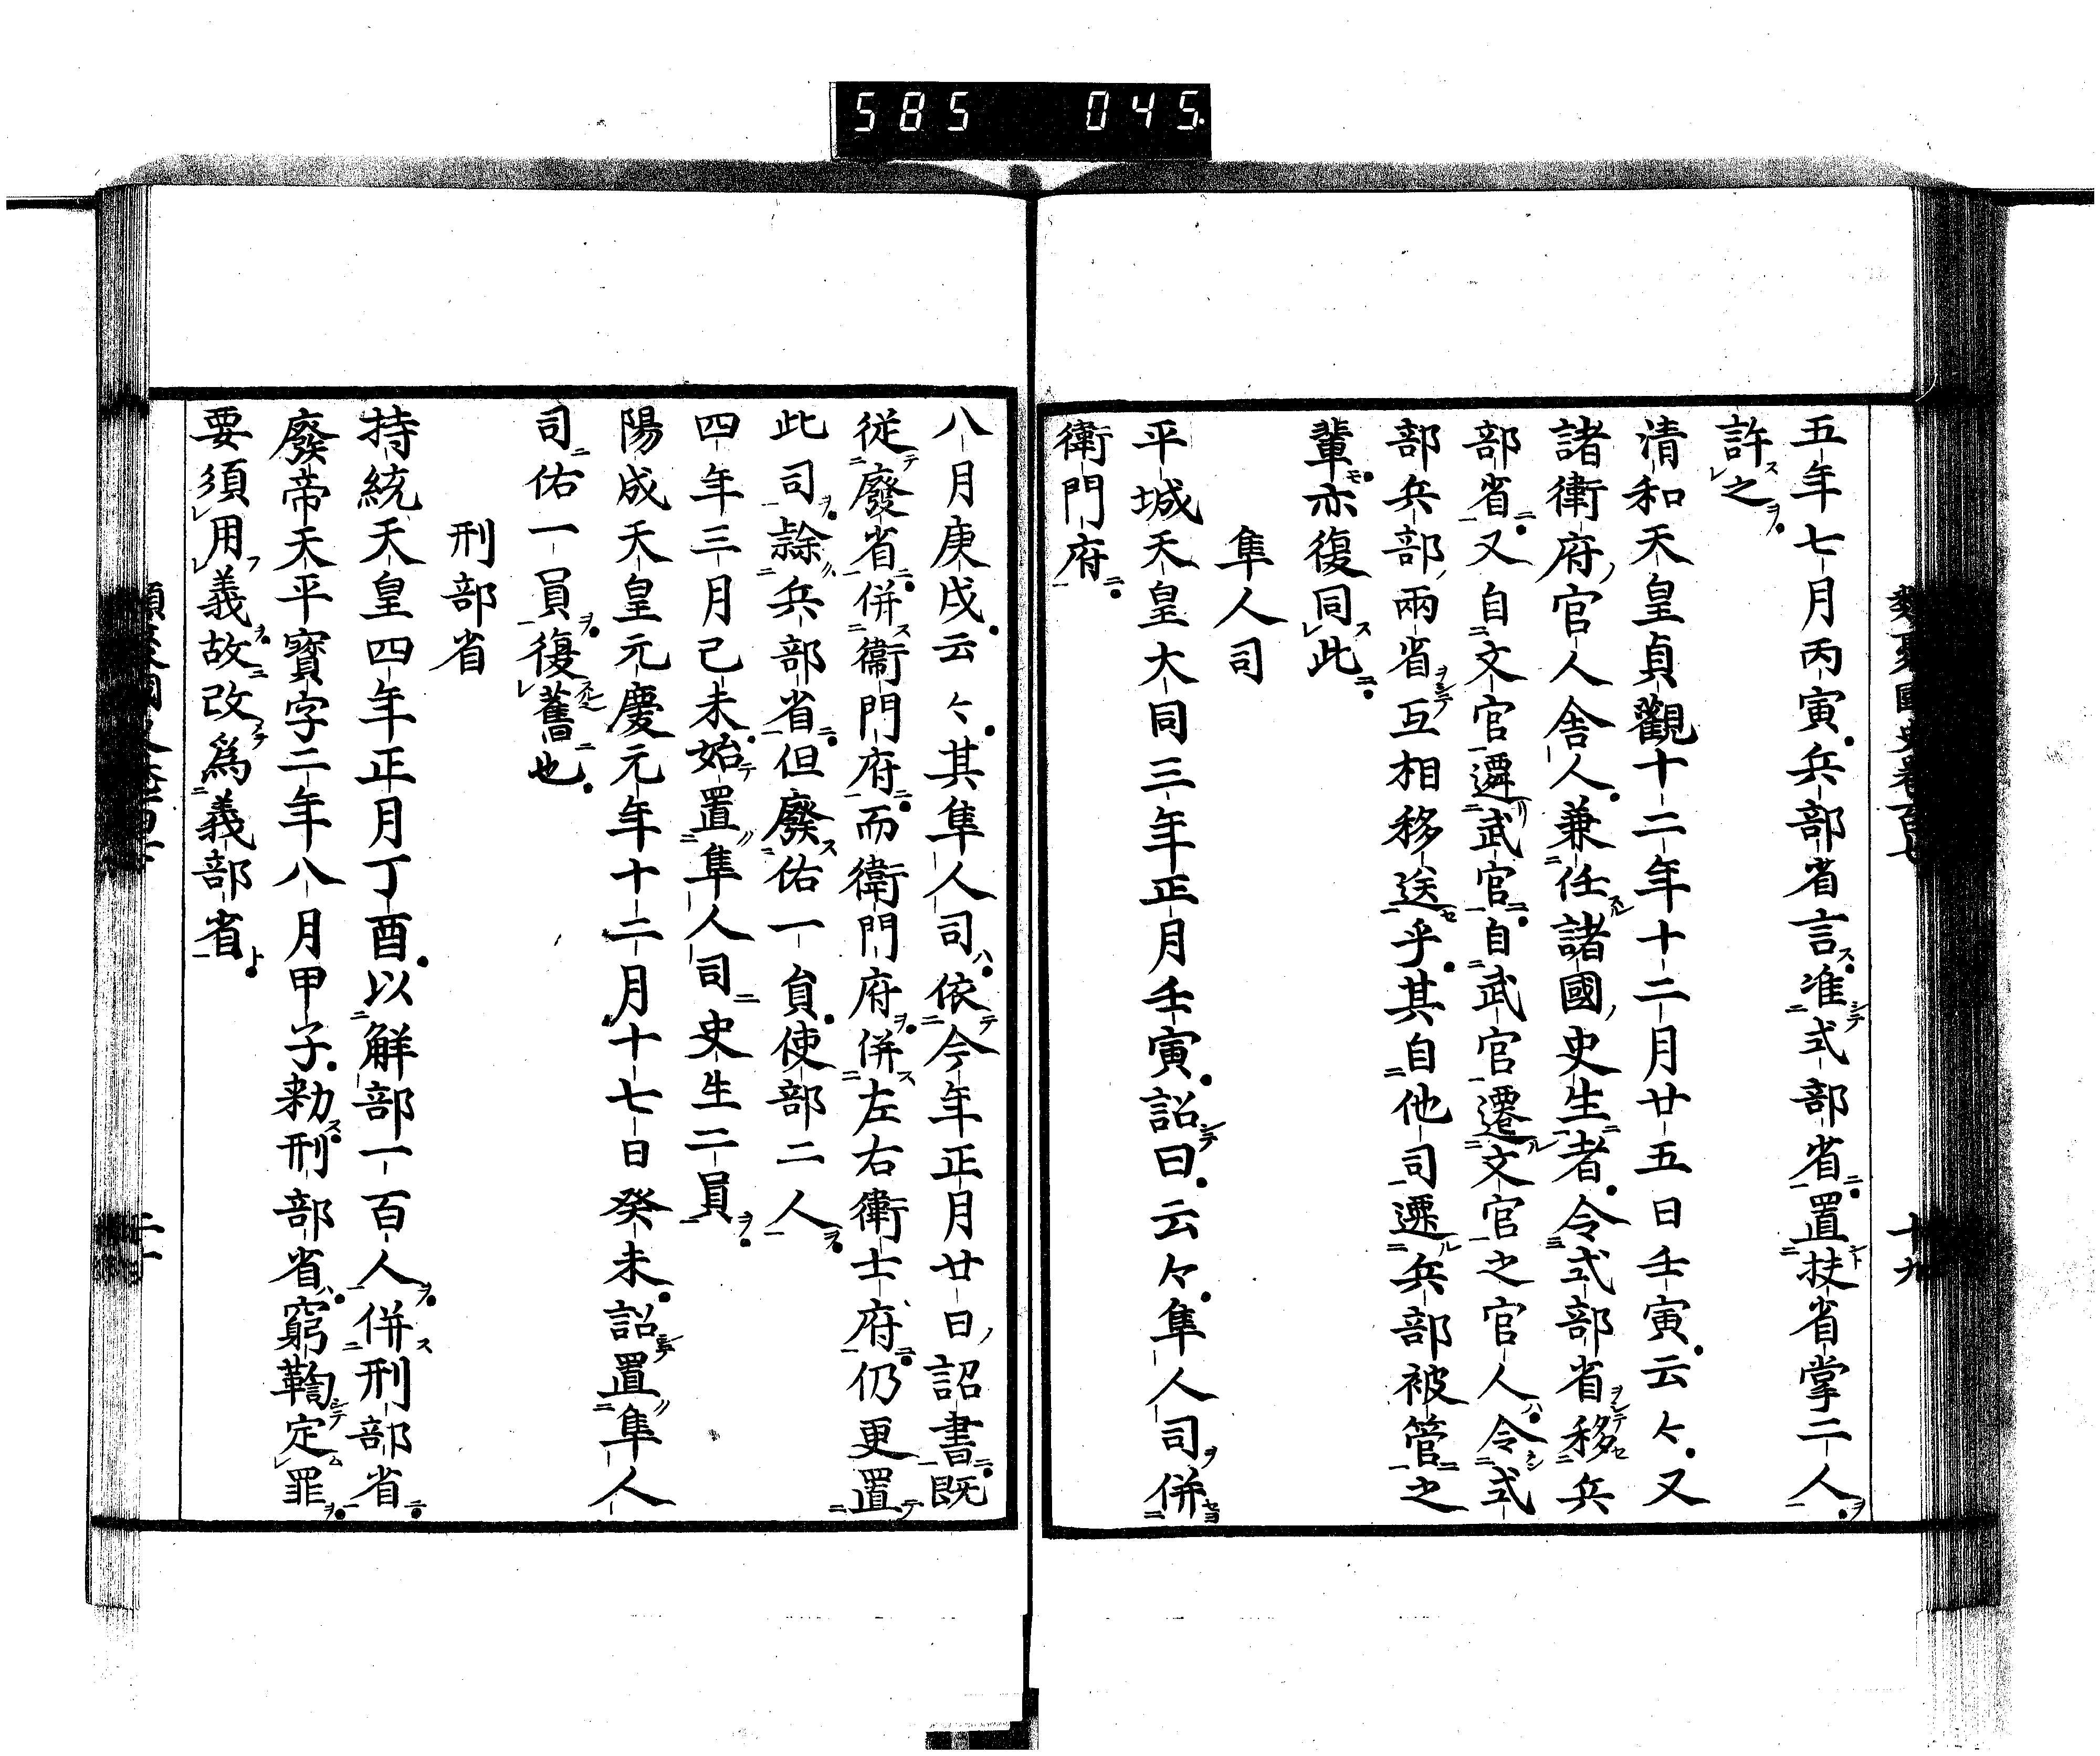 585 045
五年七月丙寅兵部省言准式部省置扶省掌二人
許之
清和天皇貞觀十二年十二月廿五日壬寅云々又
諸衛府官人舎人兼任諸國史生者令式部省移兵
部省又自文官遷武官自武官遷文官之官人令式
部兵部兩省互相移送乎其自他司遷兵部被管之
輩亦復同此
隼人司
平城天皇大同三年正月壬寅詔曰云々隼人司併
衛門府
八月庚戌云々其隼人司依今年正月廿日詔書既
従廢省併衞門府而衛門府併左右衛士府仍更置
此司隷兵部省但廢佑一員使部二人
四年三月己未始置隼人司史生二員
陽成天皇元慶元年十二月十七日癸未詔置隼人
司佑一員復舊也
刑部省
持統天皇四年正月丁酉以解部一百人併刑部省
廢帝天平寳字二年八月甲子勅刑部省窮鞫定罪
要須用義故改爲義部省